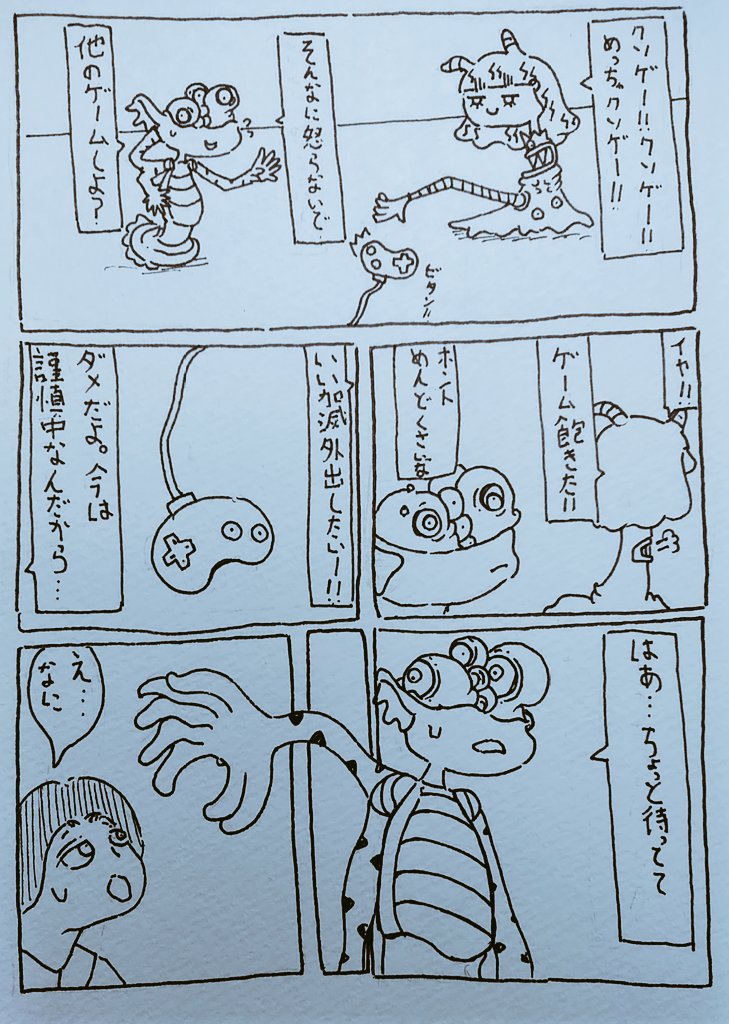 クソゲー!!クソゲー!!
めっちゃクソゲー!!
そんなに怒らないで
他のゲームしよ?
ビタン!!
イヤ!!
ゲーム飽きた!!
ホント
めんどくさいな
いい加減外出したいー!!
ダメだよ。今は
謹慎中なんだから…
はあ…ちょっと待ってて
え…
なに